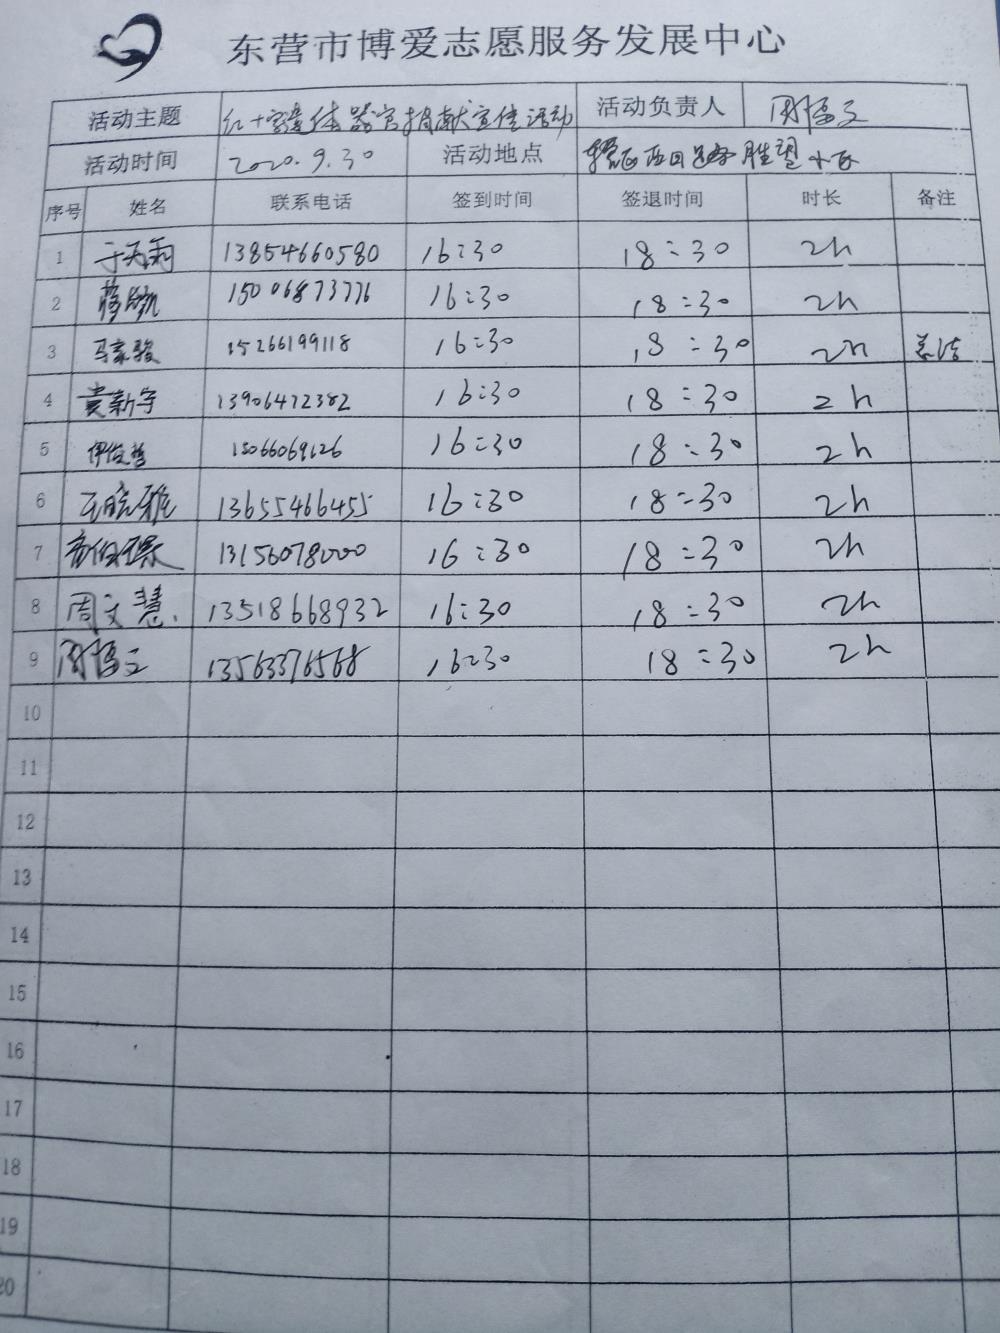 东营市博爱志愿服务发展中心
活动主题 红十字遗体器官捐献宣传活动 活动负责人
活动时间 2020.9.30 活动地点 胜望小区
序号 姓名 联系电话 签到时间 签退时间 时长 备注
1 13854660580 16:30 18:30 2h
2 15006873776 16:30 18:30 2h
3 马家骏 15266199118 16:30 18:30 2h 总结
4 袁新宇 13906472382 16:30 18:30 2h
5 伊俊哲 15066069126 16:30 18:30 2h
6 13655466455 16:30 18:30 2h
7 13156078000 16:30 18:30 2h
8 周文慧 13518668932 16:30 18:30 2h
9 13563376568 16:30 18:30 2h
10
11
12
13
14
15
16
17
18
19
20